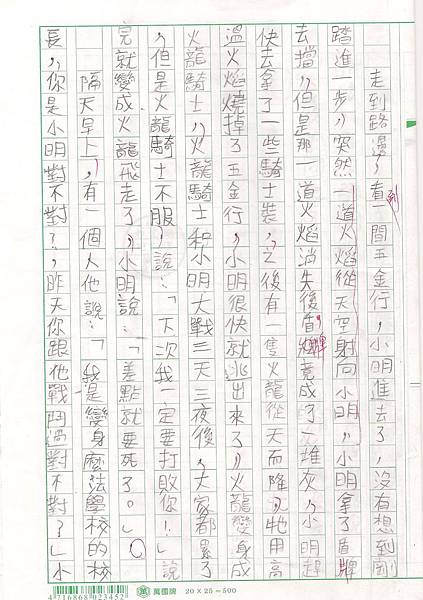 走到路邊，看到一間五金行，小明進去了，沒有想到剛
踏進一步，突然一道火焰從天空射向小明，小明拿了盾牌
去擋，但是那一道火焰消失後盾牌竟成了一堆灰，小明趕
快去拿了一些騎士裝，之後有一隻火龍從天而降，牠用高
溫火焰燒掉了五金行，小明很快就逃出來了，火龍變身成
火龍騎士，火龍騎士和小明大戰三天三夜後，大家都累了
，但是火龍騎士不服，說：「下次我一定要打敗你！」說
完就變成火龍飛走了，小明說：「差點就要死了。」
隔天早上，有一個人他說：「我是變身魔法學校的校
長，你是小明對不對？，昨天你跟他戰鬥過對不對？」小
4 716868 023452
萬國牌 20×25=500